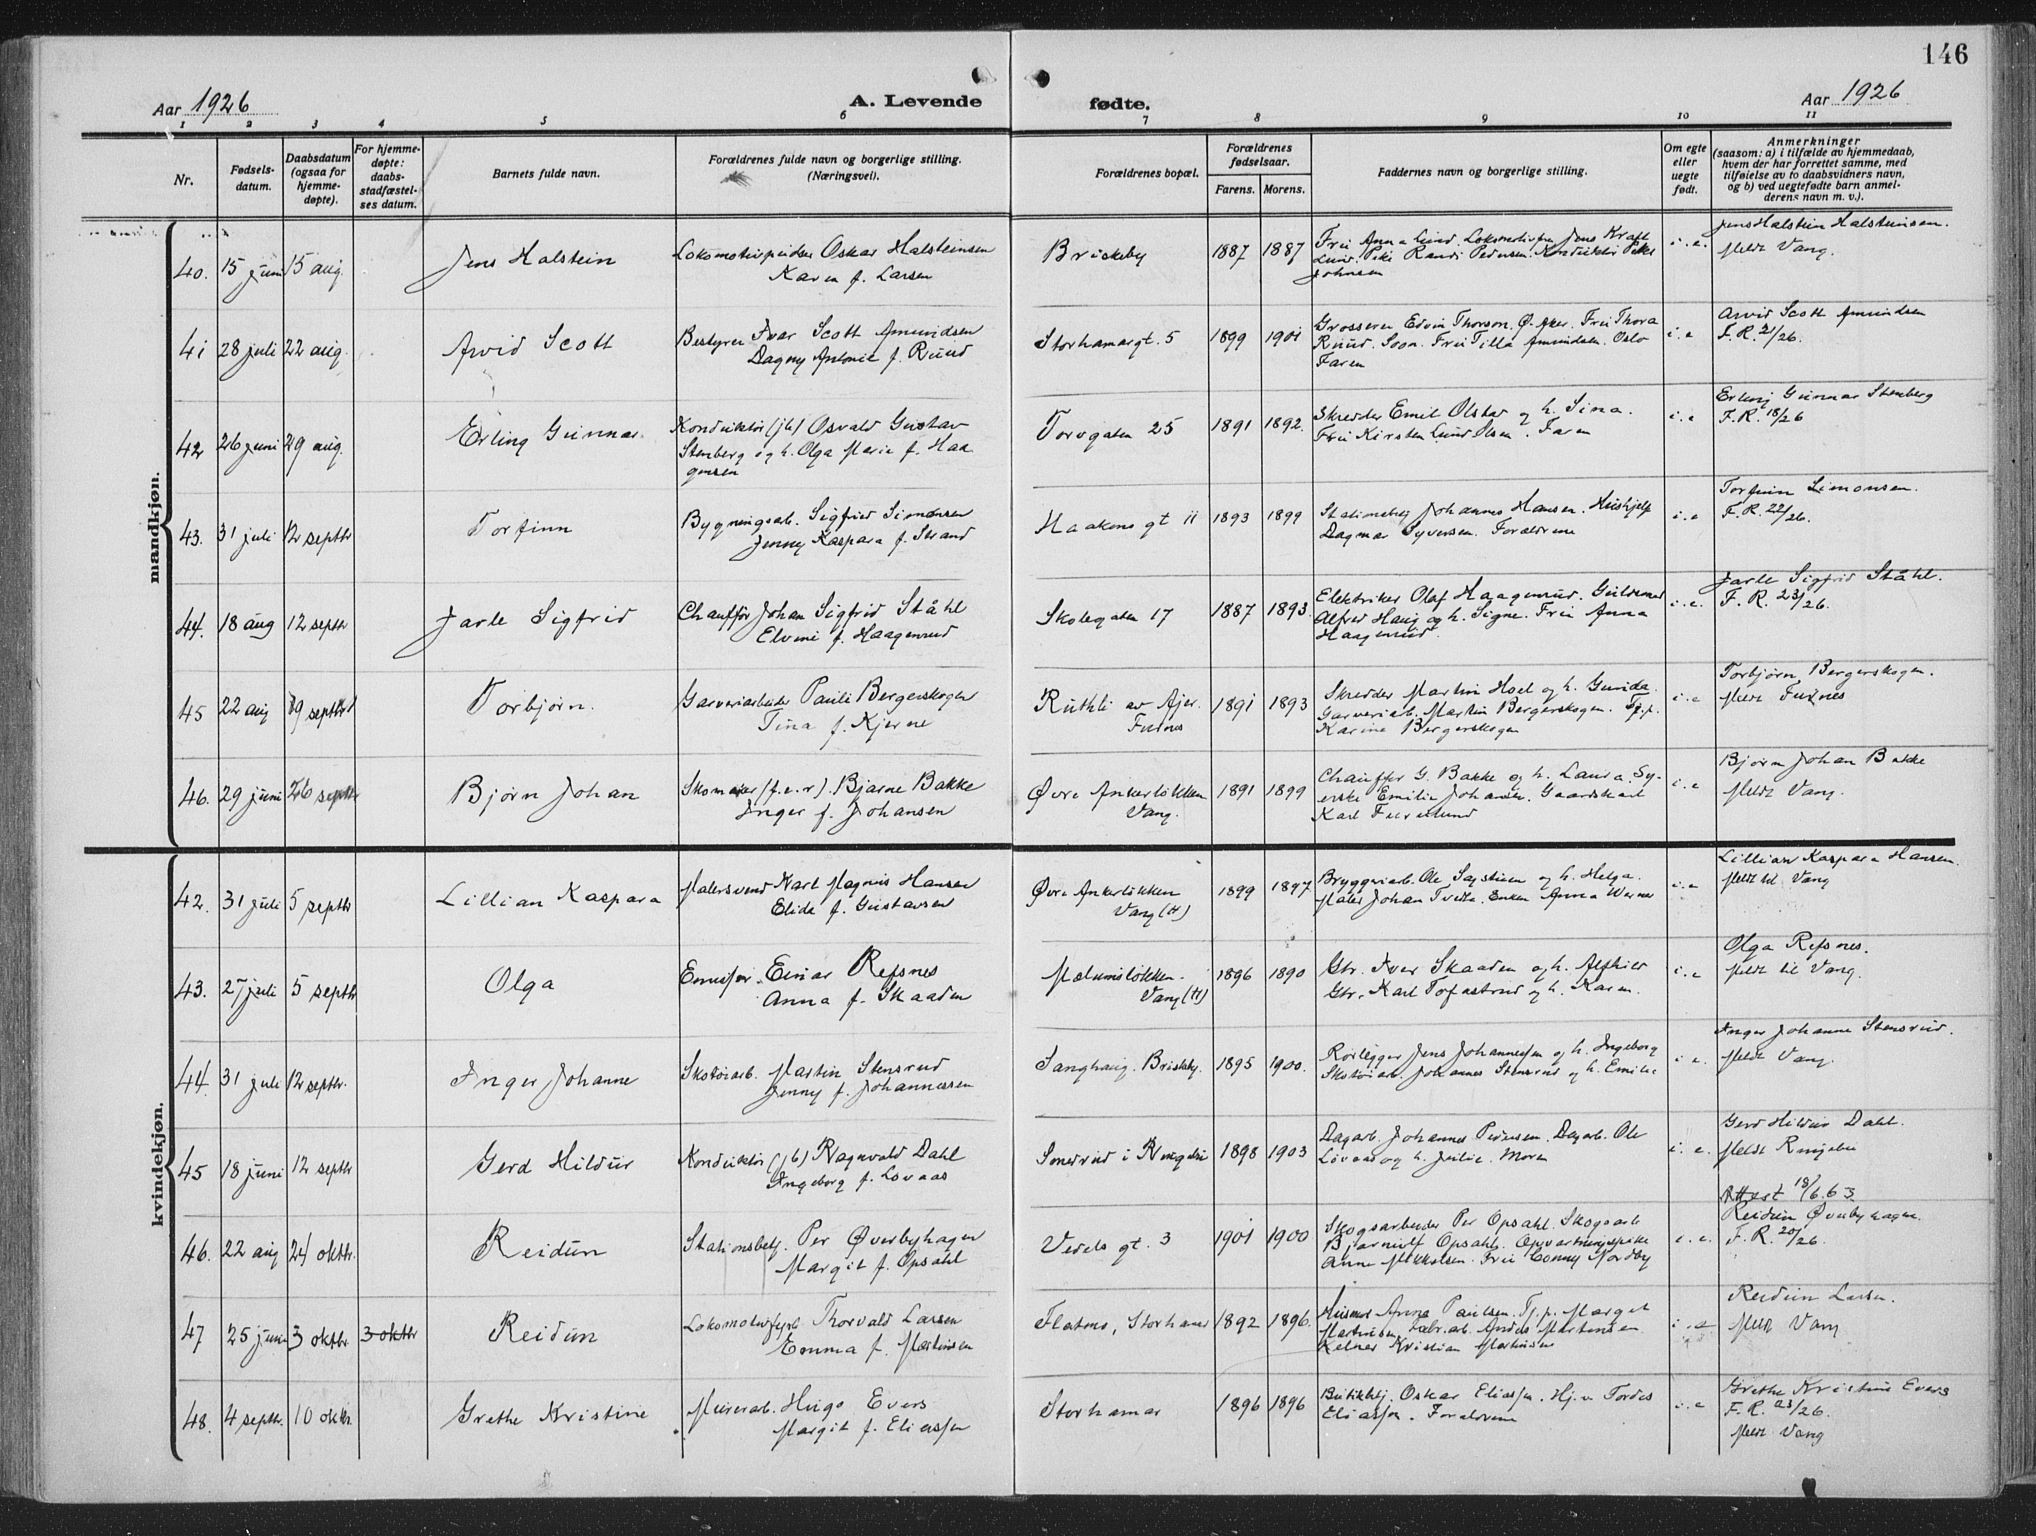 146
Aar 1926
A. Levende fødte.
Aar 1926
1 2 3 4 5 6 7 8 9 10 11
Nr.
Fødsels-
datum.
Daabsdatum
(ogsaa for
hjemme-
døpte).
For hjemme-
døpte:
daabs-
stadfæstel-
ses datum.
Barnets fulde navn.
Forældrenes fulde navn og borgerlige stilling.
(Næringsvei).
Forældrenes bopæl.
Forældrenes
fødselsaar.
Farens. Morens.
Faddernes navn og borgerlige stilling.
Om egte
eller
uegte
født.
Anmerkninger
(saasom: a) i tilfælde av hjemmedaab,
hvem der har forrettet samme, med
tilføielse av to daabsvidners navn,
og b) ved uegtefødte barn anmel-
derens navn m. v.).
mandkjøn.
40. 15 juni 15 aug. Jens Halstein
Oskar Halsteinsen
Karen f. Larsen
Briskeby 1887 1887
Frii Anna Lund. Jens Kraft
Lund. Pike Randi Pedersen. Konduktør
Johnsen
i. e.
Jens Halstein Halsteinsen.
Meldt Vang.
41 28 juli 22 aug. Arvid Scott
Bestyrer Ivar Scott Amundsen
Dagny Antonie f. Ruud
Storhamargt. 5 1899 1901
Grosserer Edvin Thorson. Ø. Aker. Frii Thora
Ruud. Frii Tilla Amundsen. Oslo
Faren
i. e
Arvid Scott Amundsen
F. R. 21/26.
42 26 juni 29 aug. Erling Gunnar
Konduktør (jb) Osvald Gustav
Stenberg og h. Olga Marie f. Haa
gensen
Torvgaten 25 1891 1892.
Skredder Emil Olstad og h. Sina.
Frii Kirsten Lund Olsen. Faren
i. e
Erling Gunnar Stenberg
F. R. 18/26
43. 31 juli 12 septbr Torfinn
Bygningsarb. Sigfrid Simonsen
Jenny Kaspara f. Strand
Haakons gt 11 1893 1899
Stationsbetj Johannes Hansen. Hushjelp
Dagmar Syversen. Forældrene
i. e
Torfinn Simonsen.
F. R. 22/26.
44. 18 aug 12 septbr Jarle Sigfrid
Chauffør Johan Sigfrid Ståhl
Elvine f. Haagenrud
Skolegaten 17 1887 1893.
Elektriker Olaf Haagenrud. Guldsmed
Alfred Haug og h. Signe. Frii Anna
Haagenrud.
i. e.
Jarle Sigfrid Ståhl.
F. R. 23/26.
45 22 aug 19 septbr Torbjørn.
Garveriarbeider Pauli Bergerskogen
Tina f. Kjerne
Ruthli av Ajer.
Furnes
1891 1893
Skredder Martin Hoel og h. Gunda.
Garveriarb. Martin Bergerskogen. Tj. p.
Karine Bergerskogen
i. e
Torbjørn Bergerskogen.
Meldt Furnes
46. 29 juni 26 septbr Bjørn Johan
Skomaker (f.e.r). Bjarne Bakke
Inger f. Johansen
Øvre Ankerløkken
Vang.
1891 1899
Chauffør G. Bakke og h. Laura. Sy-
erske Emilie Johansen. Gaardskarl
Karl Furulund
i. e
Bjørn Johan Bakke
Meldt Vang.
kvindekjøn.
42. 31 juli 5 septbr Lillian Kaspara
Malersvend Karl Magnus Hansen
Elida f. Gustavsen
Øvre Ankerløkken
Vang (H)
1899 1897
Bryggeriarb. Ole Sagstuen og h. Helga.
Maler Johan Tvedta. Enken Anna Warner
i. e
Lillian Kaspara Hansen.
Meldt til Vang
43. 27 juli 5 septbr Olga
Einar Refsnes
Anna f. Skaaden
Mælumsløkken.
Vang (H)
1896 1890
Gbr. Iver Skaaden og h. Alfhild
Gbr. Karl Tofastrud og h. Karen.
i. e
Olga Refsnes.
Meldt til Vang.
44. 31 juli 12 septbr. Inger Johanne
Skotøiarb. Martin Stensrud
Jenny f. Johannessen
Sanghaug. Briskeby. 1895 1900.
Rørlegger Jens Johannessen og h. Ingeborg
Skotøiarb. Johannes Stensrud og h. Emilie
i. e.
Inger Johanne Stensrud.
Meldt Vang.
45 18 juni 12 septbr Gerd Hildur
Konduktør (jb) Ragnvald Dahl
Ingeborg f. Løvaas
i Ringebu 1898 1903
Dagarb. Johannes Pedersen. Dagarb. Ole
Løvaas og h. Julie. Moren
i. e.
Gerd Hildur Dahl.
Meldt Ringebu
Attest 18/6.63.
46. 22 aug 24 oktbr. Reidun
Stationsbetj. Per Øverbyhagen
Margit f. Opsahl
Vedels gt. 3 1901 1900
Skogsarbeider Per Opsahl. Skogsarb
Bjarnulf Opsahl. Opvartningspike
Anne Mikkelsen. Frii Conny Nordby
i. e.
Reidun Øverbyhagen.
F. R. 20/26.
47 25 juni 3 oktbr 3 oktbr Reidun
Lokomotivfyrb Thorvald Larsen
Emma f. Martinsen
Flatens, Storhamar 1892 1896.
Anna Paulsen. Tj. p. Margit
Martinsen Fabr. arb. Anders Martinsen
Kelner Kristian Martinsen
i. e
Reidun Larsen.
Meldt Vang
48. 4 septbr. 10 oktbr. Grethe Kristine
Murerarb. Hugo Evers
Margit f. Eliassen
Storhamar 1896 1896
Butikbetj. Oskar Eliassen. Tordis
Eliassen. Forældrene
i. e
Grethe Kristine Evers
F. R. 23/26.
Meldt Vang